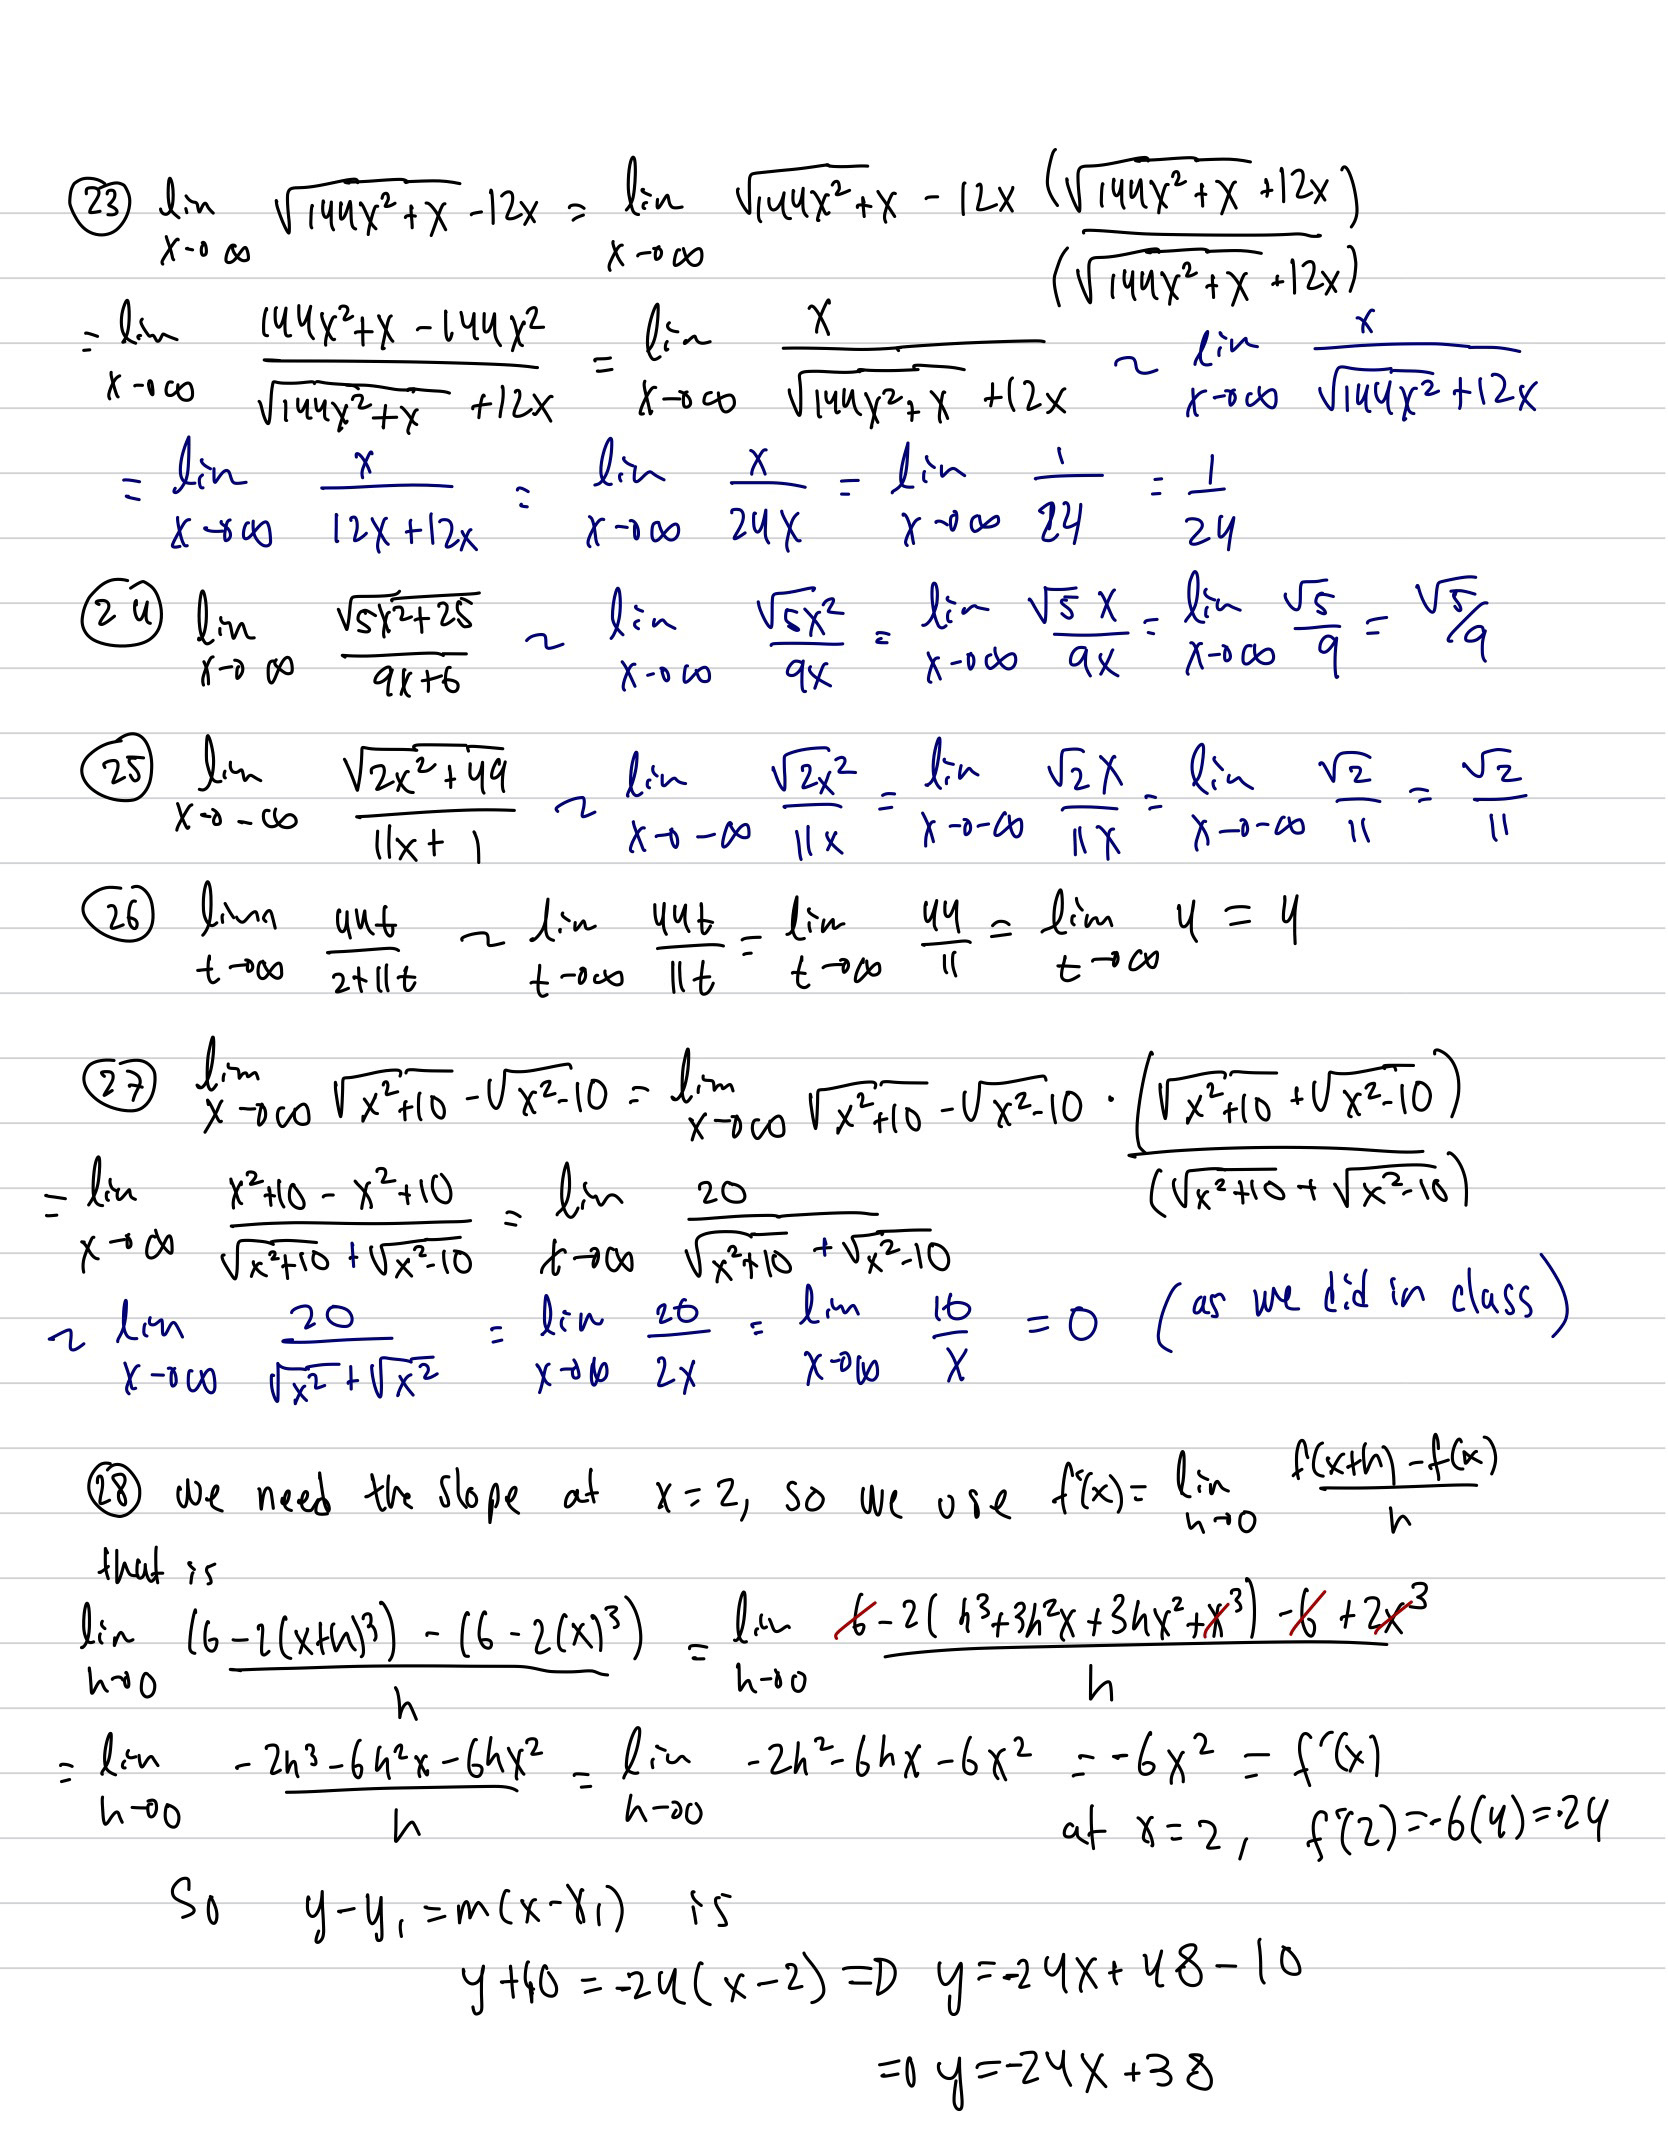 (23) lim x→∞ √(144x²+x) -12x = lim x→∞ √(144x²+x) - 12x (√(144x²+x) +12x)/(√(144x²+x) +12x)
= lim x→∞ (144x²+x - 144x²)/(√(144x²+x) +12x) = lim x→∞ x/(√(144x²+x) +12x) ~ lim x→∞ x/(√(144x²) +12x)
= lim x→∞ x/(12x+12x) = lim x→∞ x/(24x) = lim x→∞ 1/24 = 1/24
(24) lim x→∞ √(5x²+25)/(9x+6) ~ lim x→∞ √(5x²)/(9x) = lim x→∞ √5 x/(9x) = lim x→∞ √5/9 = √5/9
(25) lim x→-∞ √(2x²+49)/(11x+1) ~ lim x→-∞ √(2x²)/(11x) = lim x→-∞ √2 x/(11x) = lim x→-∞ √2/11 = √2/11
(26) lim t→∞ 44t/(2+11t) ~ lim t→∞ 44t/(11t) = lim t→∞ 44/11 = lim t→∞ 4 = 4
(27) lim x→∞ √(x²+10) - √(x²-10) = lim x→∞ √(x²+10) - √(x²-10) · (√(x²+10) + √(x²-10))/(√(x²+10) + √(x²-10))
= lim x→∞ (x²+10 - x²+10)/(√(x²+10) + √(x²-10)) = lim t→∞ 20/(√(x²+10) + √(x²-10))
~ lim x→∞ 20/(√(x²) + √(x²)) = lim x→∞ 20/(2x) = lim x→∞ 10/x = 0 (as we did in class)
(28) we need the slope at x=2, so we use f'(x)= lim h→0 (f(x+h) - f(x))/h
that is
lim h→0 ((6-2(x+h)³) - (6-2(x)³))/h = lim h→0 (6-2(h³+3h²x+3hx²+x³) -6 +2x³)/h
= lim h→0 (-2h³-6h²x-6hx²)/h = lim h→0 -2h²-6hx-6x² = -6x² = f'(x)
at x=2, f'(2)=-6(4)=-24
So y-y₁=m(x-x₁) is
y+10 = -24(x-2) ⇒ y=-24x+48-10
⇒ y=-24x+38